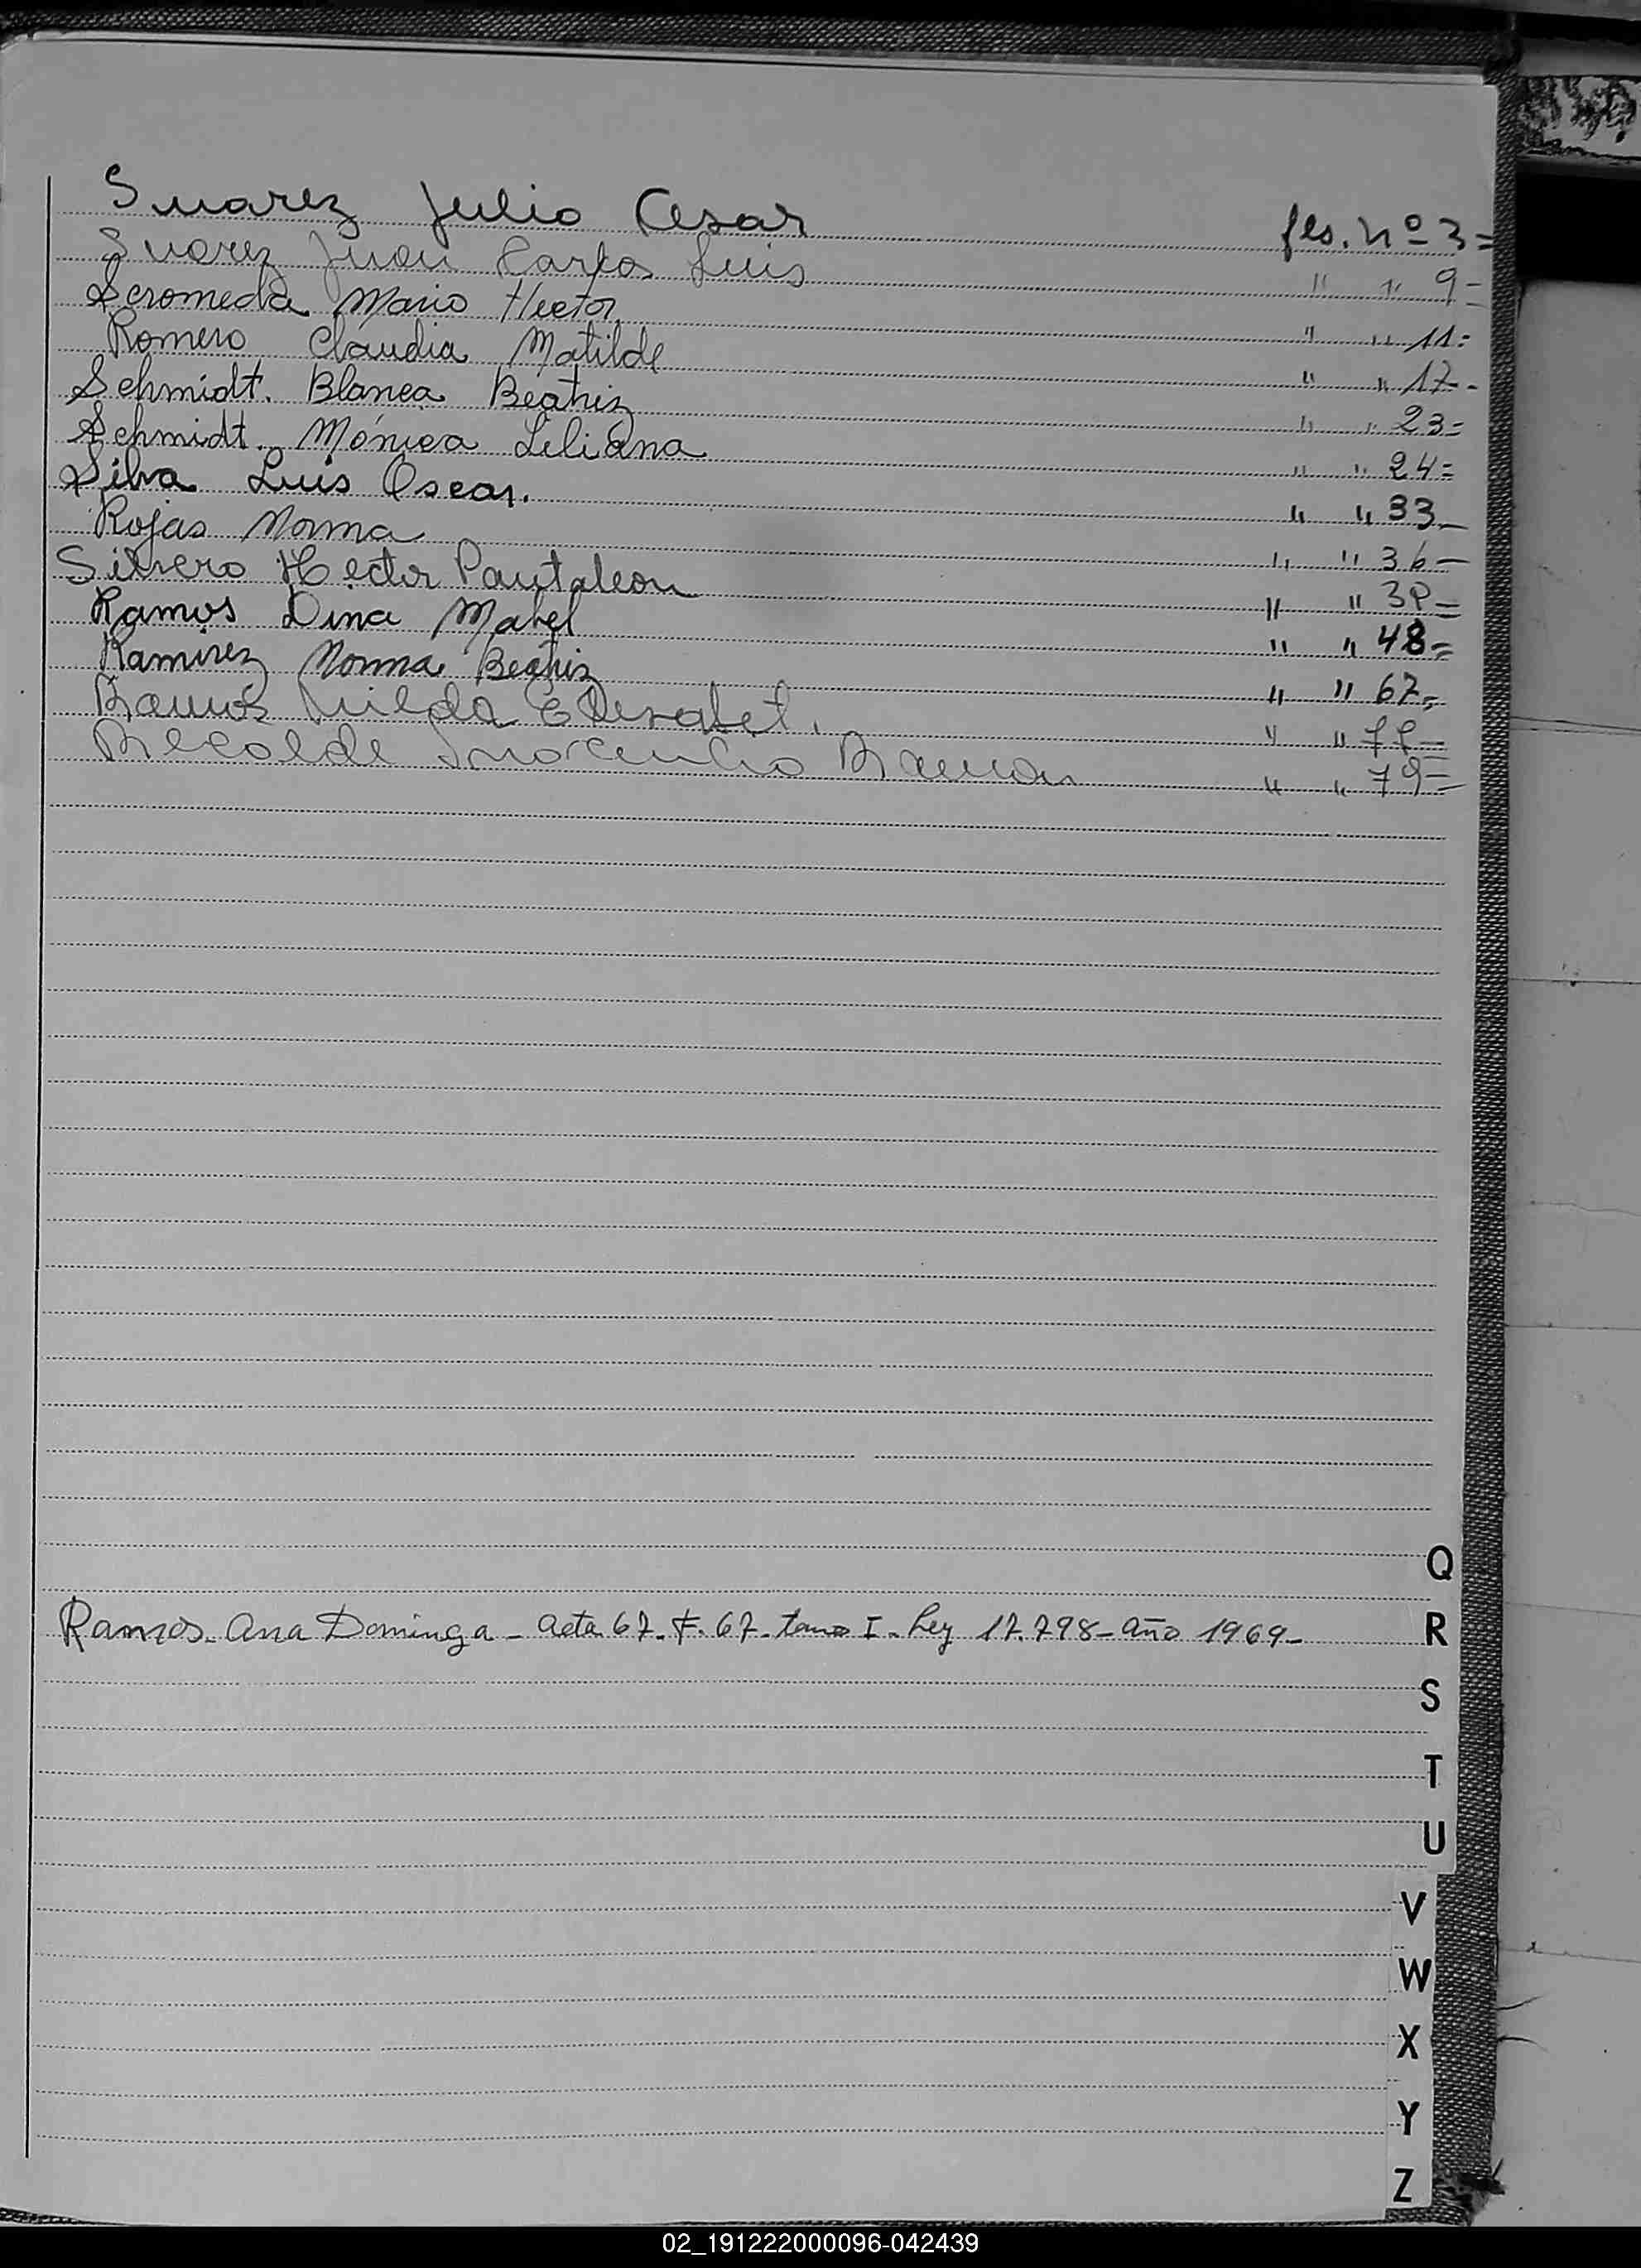 Suarez Julio Cesar fls. Nº 3=
Suarez Juan Carlos Luis " " 9=
Scromeda Mario Hector " " 11=
Romero Claudia Matilde " " 17-
Schmidt. Blanca Beatriz " " 23=
Schmidt. Mónica Liliana " " 24=
Silva Luis Oscar. " " 33-
Rojas Norma " " 36-
Silvero Hector Pantaleon " " 38=
Ramos Dina Mabel " " 48=
Ramirez Norma Beatriz " " 67=
Ramos Nilda Elisabet. " "
Recalde Inocencio Ramon " " 79=
Q
Ramos. Ana Dominga - Acta 67- F. 67- tomo I- Ley 17.798- año 1969-
R
S
T
U
V
W
X
Y
Z
02_191222000096-042439